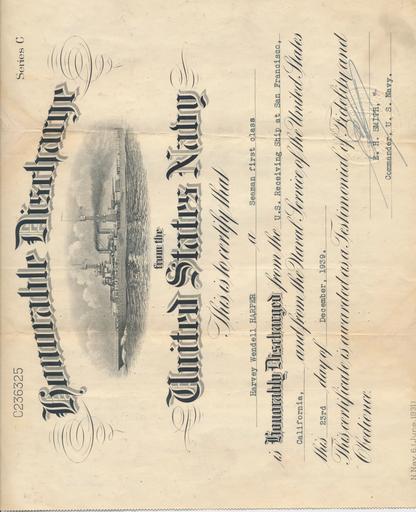 C236325
Series C
Honorable Discharge
from the
United States Navy
This is to certify that
Harvey Wendell HARPER a Seaman first class
is Honorably Discharged from the U.S. Receiving Ship at San Francisco,
California, and from the Naval Service of the United States
this 23rd day of December, 1939.
This certificate is awarded as a Testimonial of Fidelity and
Obedience.
E. H. SMITH,
Commander, U. S. Navy.
N. Nav. 6 (June 1931)